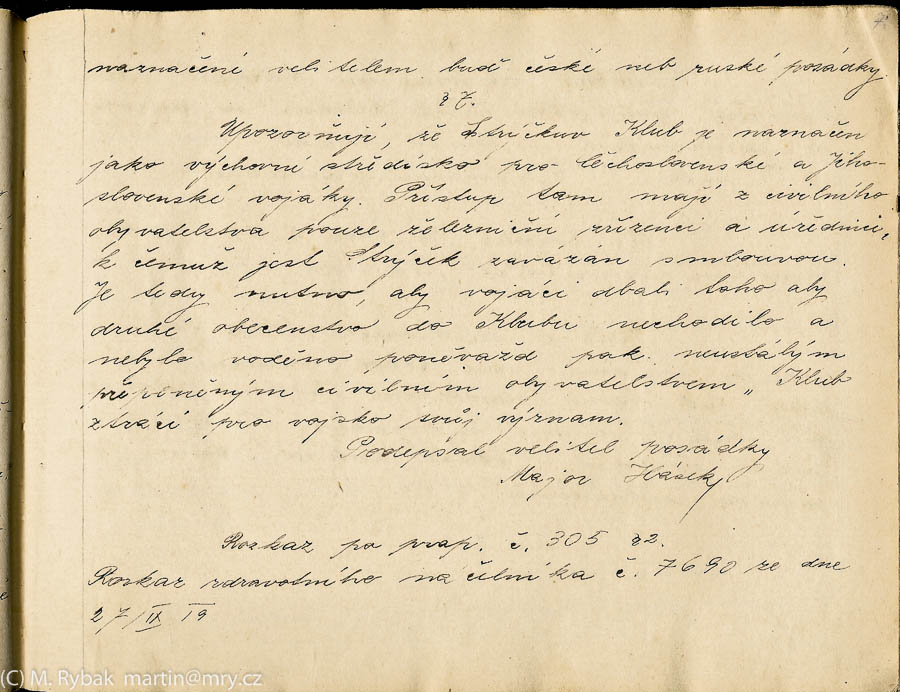 7.
naznačéni velitelem buď české neb ruské posádky.
§ 7.
Upozorňuji, že Strýčkuv Klub je naznačen
jako výchovní středisko pro Čechoslovenské a Jiho-
slovenské vojáky. Přístup tam mají z civilního
obyvatelstva pouze železniční zřízenci a úředníci,
k čemuž jest Strýček zavázán smlouvou.
Je tedy nutno, aby vojáci dbali toho aby
druhé obecenstvo do Klubu nechodilo a
nebylo voděno poněvažd pak neustálým
přeplněným civilním obyvatelstvem „Klub
ztrácí pro vojsko svůj význam.
Podepsal velitel posádky
Major Hásek
Rozkaz po prap. č. 305 §2.
Rozkaz zdravotního náčelníka č. 7690 ze dne
27/IX 19
(C) M. Rybak martin@mry.cz